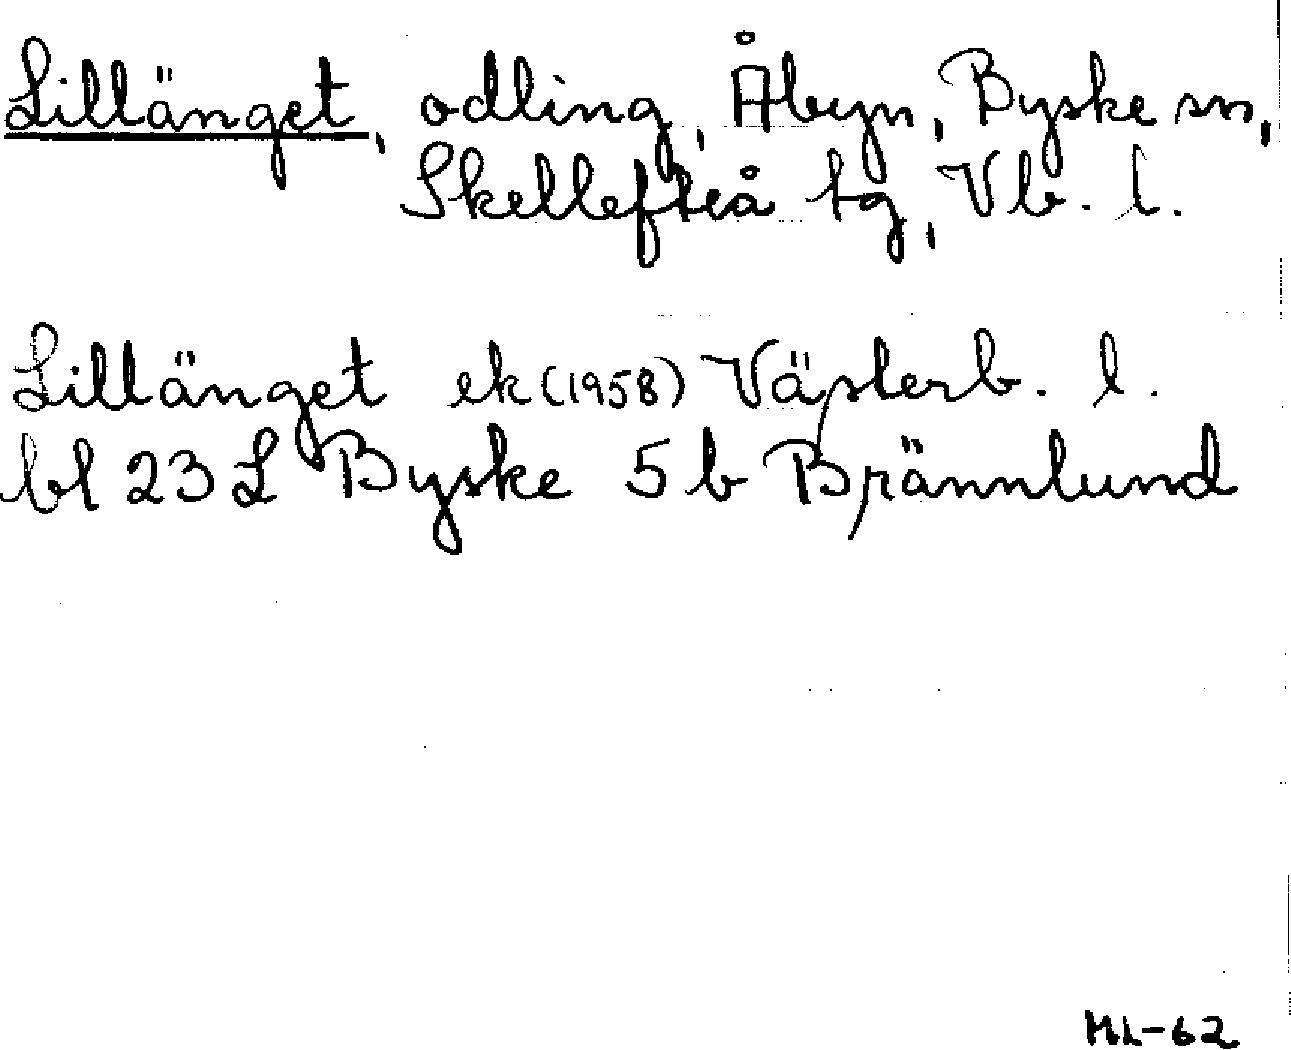 Lillänget, odling, Åbyn, Byske sn,
Skellefteå tg, Vb. l.
Lillänget ek (1958) Västerb. l.
bl 23 L Byske 5 b Brännlund
ML-62